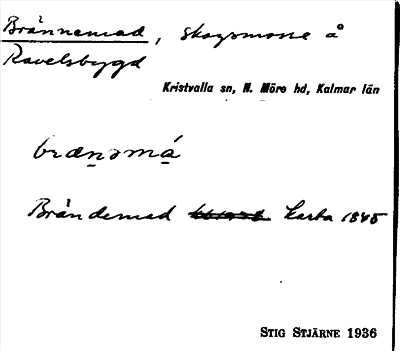 Brännemad, skogsmosse å
Ravelsbygd
Kristvalla sn, N. Möre hd, Kalmar län
brænəmá
Brändemad karta 1845
STIG STJÄRNE 1936